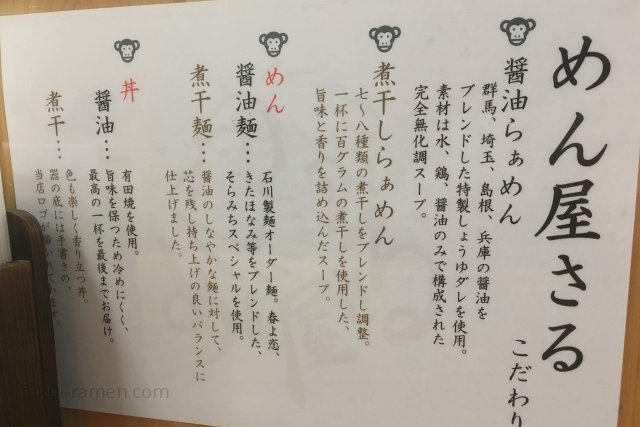 めん屋さる
こだわり
醤油らぁめん
群馬、埼玉、島根、兵庫の醤油を
ブレンドした特製しょうゆダレを使用。
素材は水、鶏、醤油のみで構成された
完全無化調スープ。
煮干しらぁめん
七~八種類の煮干しをブレンドし調整。
一杯に百グラムの煮干しを使用した、
旨味と香りを詰め込んだスープ。
めん
醤油麺…
石川製麺オーダー麺。春よ恋、
きたほなみ等をブレンドした、
そらみちスペシャルを使用。
煮干麺…
醤油のしなやかな麺に対して、
芯を残し持ち上げの良いバランスに
仕上げました。
丼
醤油…
有田焼を使用。
旨味を保つため冷めにくく、
最高の一杯を最後までお届け。
煮干…
色も楽しく香り立つ丼。
器の底には手書きの、
当店ロゴが描かれています。
fukui-ramen.com